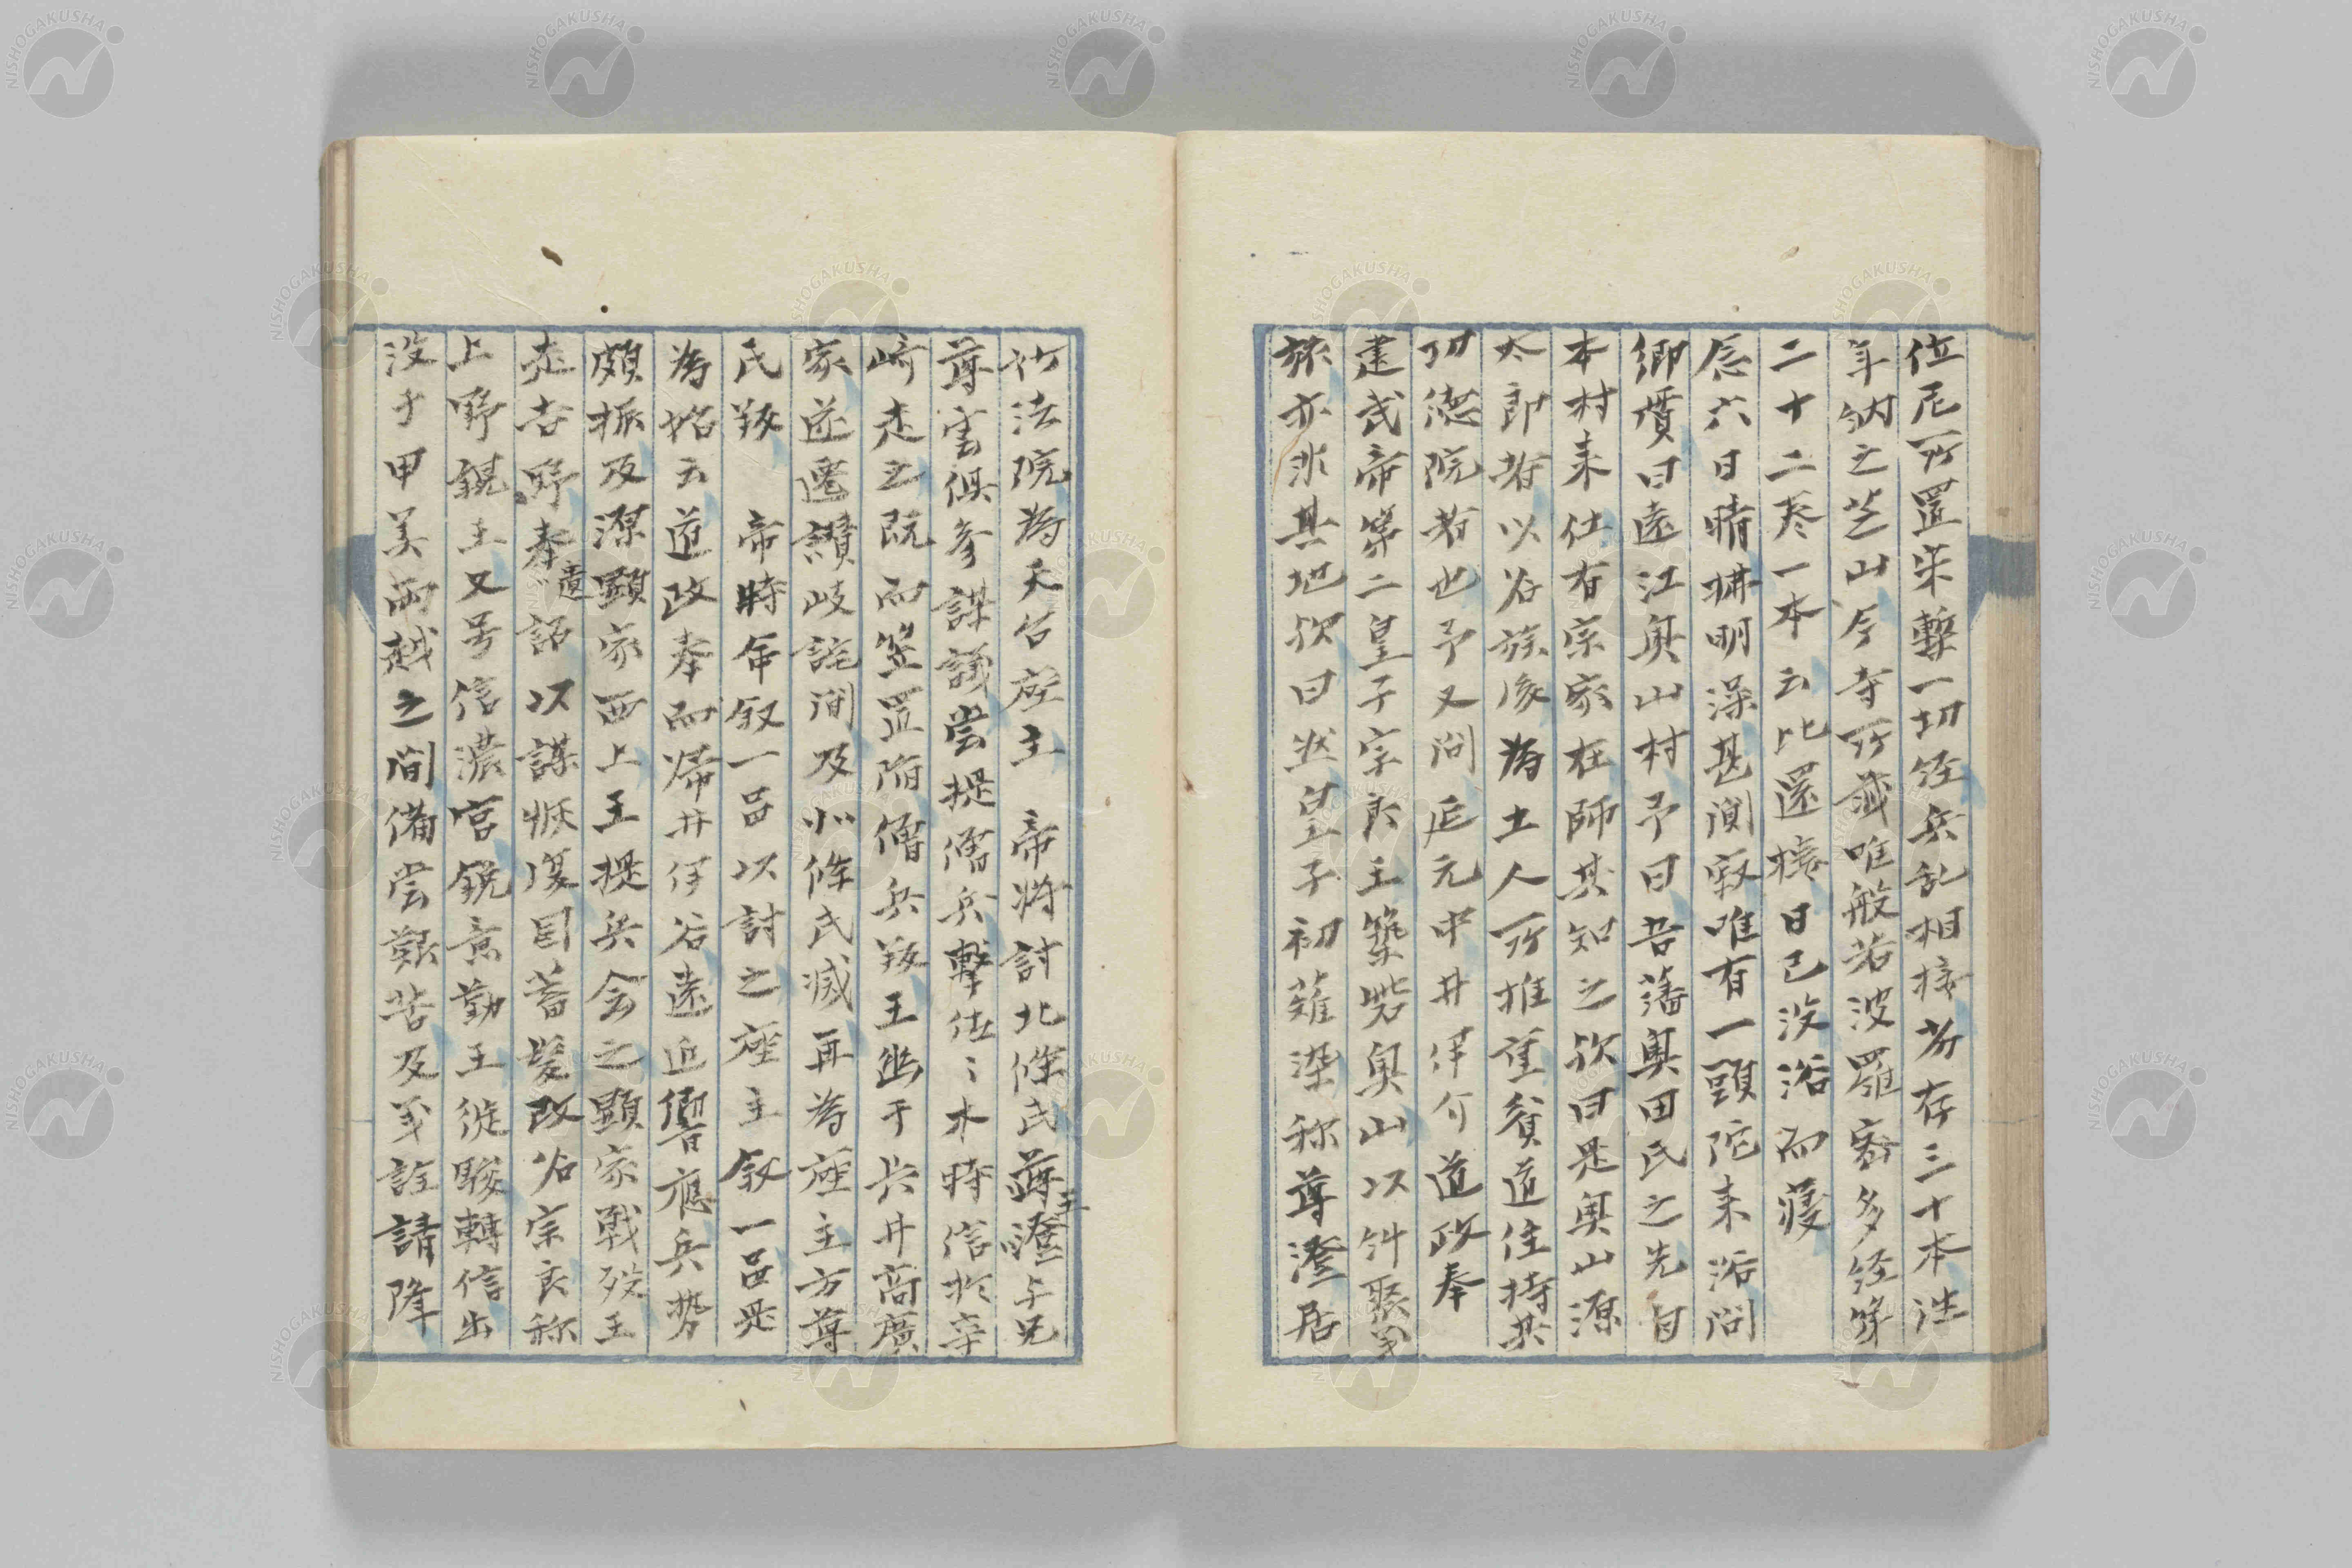 位尼所置宋槧一切経兵乱相接岁存三十本往
年納之芝山今寺所蔵唯般若波羅密多経等
二十二巻一本云比還楼日已没浴而寝
念六日晴拂明澡甚閴寂唯有一頭陀来浴問
郷貫曰遠江奥山村予曰吾藩奥田氏之先自
本村来仕有宗家在師其知之欤曰是奥山源
太郎者以谷族後為土人所推重貧道住持其
功徳院者也予又問延元中井伊介道政奉
建武帝第二皇子宗良王築砦奥山以糾聚義
旅亦非其地欤曰然皇子初薙染称尊澄居
妙法院為天台座主　帝将討北條氏尊澄王与兄
尊雲俱参謀議嘗提僧兵撃佐々木時信於辛
崎走之既而笠置陥僧兵叛王幽于兵井高廣
家遂遷讃岐詫間及北條氏滅再為座主方尊
氏叛　帝時命叙一品以討之座主叙一品是
為始云道政奉而帰井伊谷遠近響應兵势
頗振及源顕家西上王提兵会之顕家戦殁王
走吉野奉遺詔以謀恢復因蓄髪改名宗良称
上野親王又号信濃宮鋭意勤王従駿轉信出
没于甲美両越之間備嘗艱苦及義詮請降